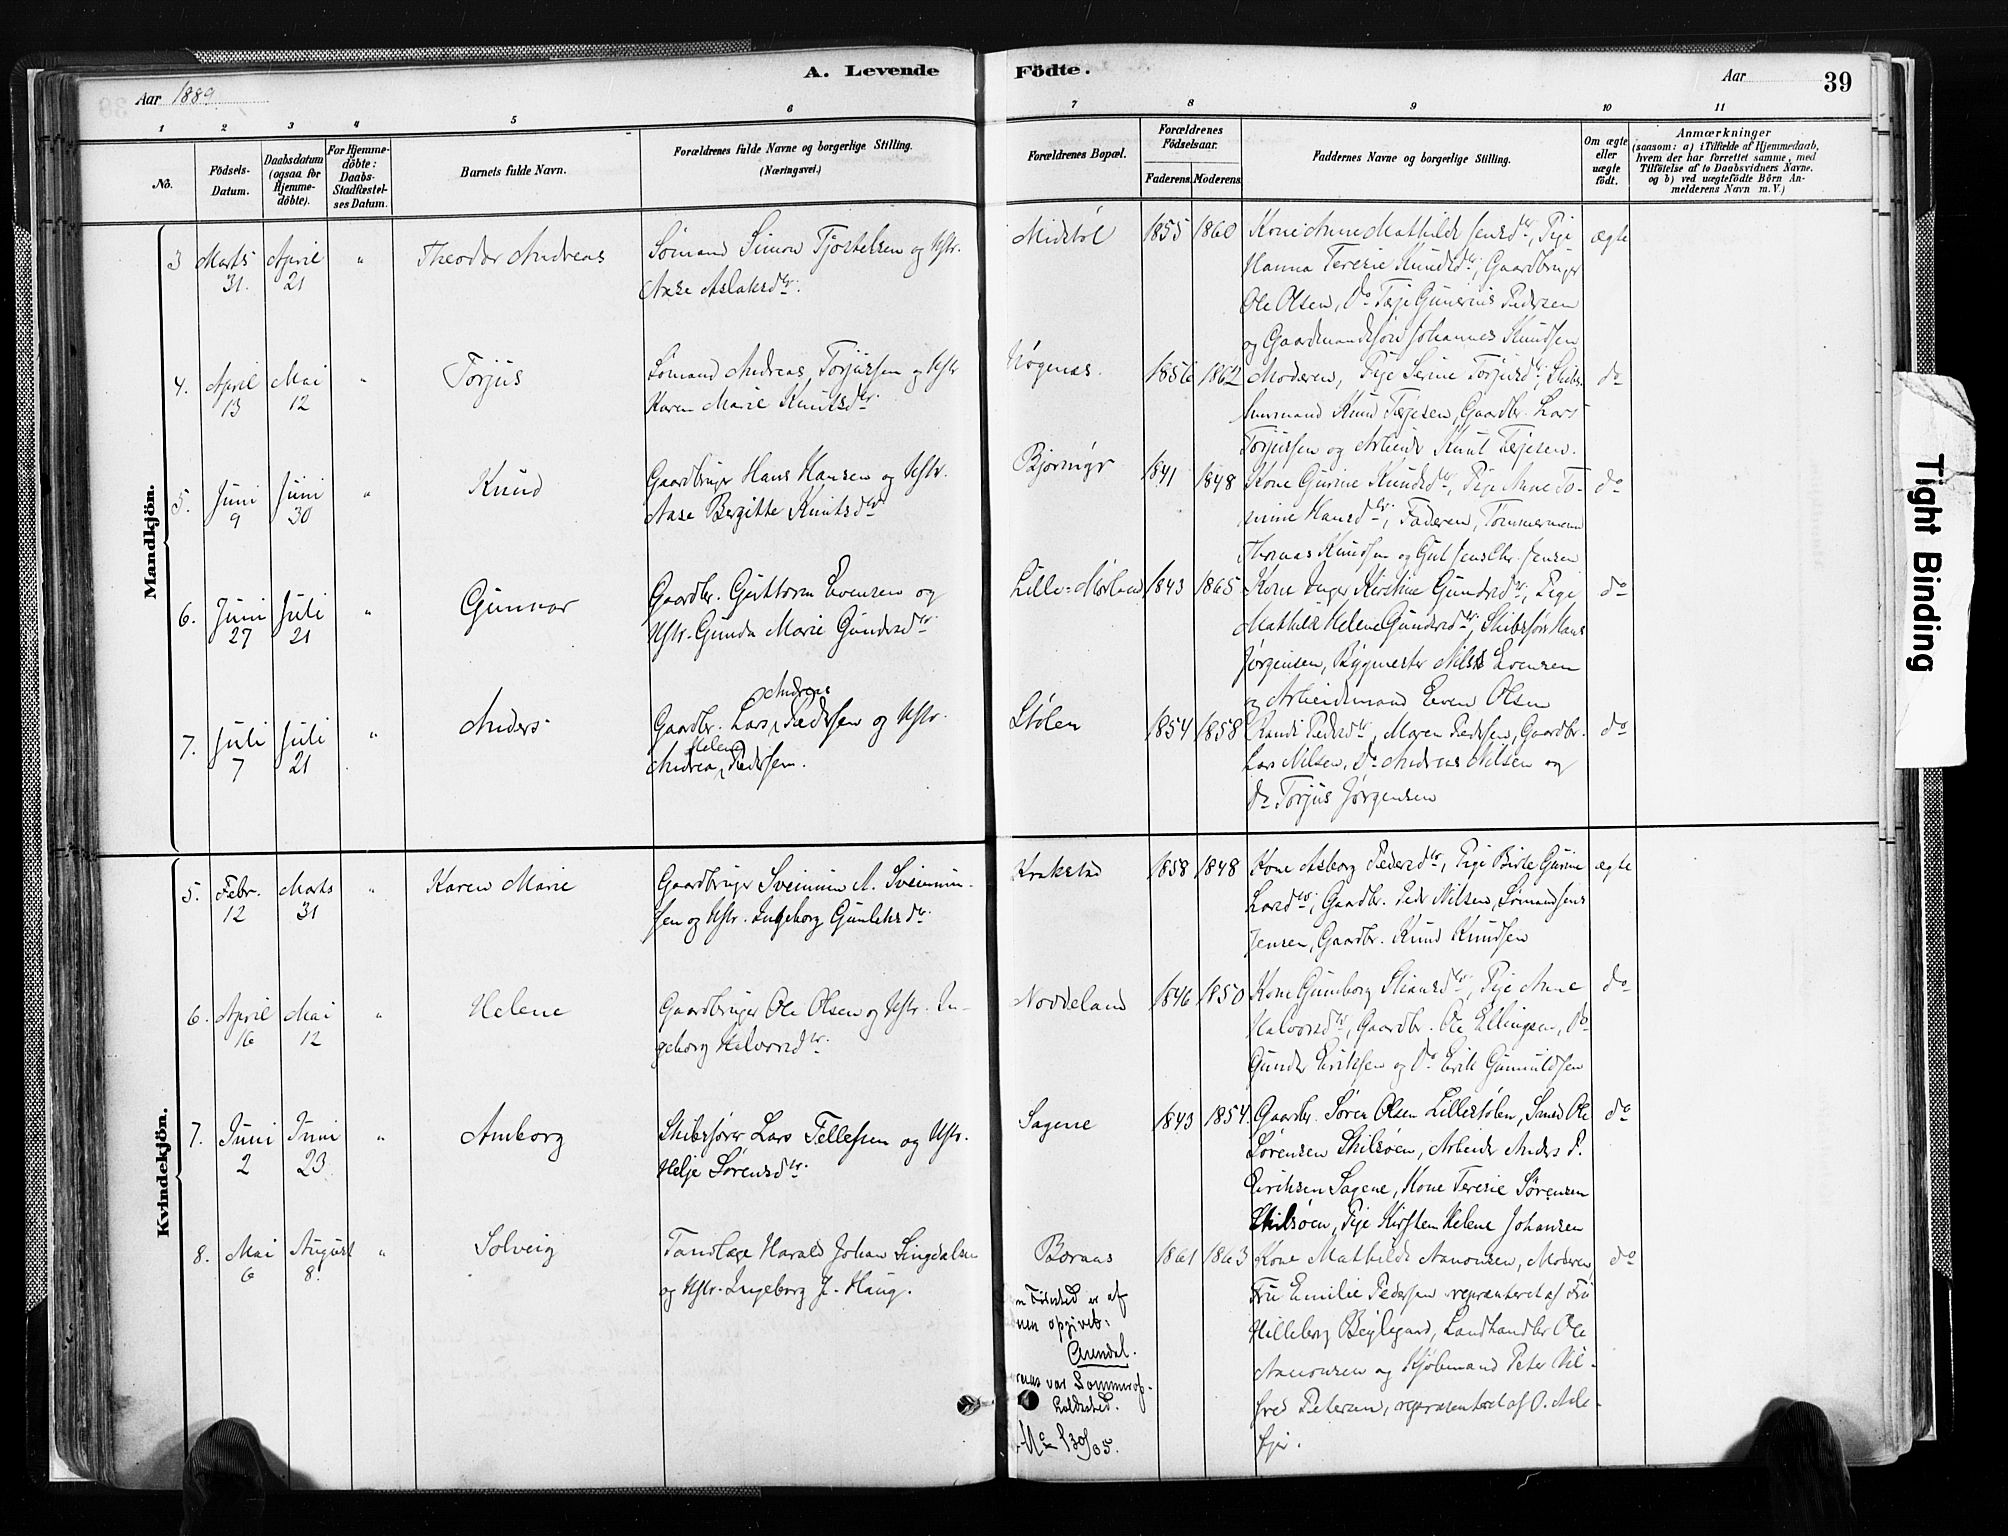 A. Levende Födte.
Aar 1889
Aar
39
1 2 3 4 5 6 7 8 9 10 11
No.
Födsels-Datum.
Daabsdatum (ogsaa for Hjemme-döbte).
For Hjemme-döbte: Daabs-Stadfæstel-ses Datum.
Barnets fulde Navn.
Forældrenes fulde Navne og borgerlige Stilling.
(Næringsvei.)
Forældrenes Bopæl.
Forældrenes Födselsaar.
Faderens. Moderens.
Faddernes Navne og borgerlige Stilling.
Om ægte eller uægte födt.
Anmærkninger
(saasom: a) i Tilfælde af Hjemmedaab, hvem der har forrettet samme, med Tilföielse af to Daabsvidners Navne, og b) ved uægtefödte Börn Anmelderens Navn m. V.)
Mandkjön.
3 Marts 31. April 21 " Theodor Andreas
Sømand Simon Tjostelsen og Hstr.
Aase Aslaksdtr.
Midbøl 1855 1860
Kone Anne Mathilde Jensdtr, Pige
Hanna Teresie Knudsdtr, Gaardbruger
Ole Olsen, Do Terje Gunerius Pedersen
og Gaardmandssøn Johannes Knudsen
ægte
4. April 13 Mai 12 " Torjus
Sømand Andreas Torjussen og Hstr
Karen Marie Knutsdtr.
1856 1862
Moderen, Pige Serine Torjusdtr, Skibs-
tømmermand Knud Terjesen, Gaardbr. Lars
Torjussen og Arbeider Knut Terjesen.
do
5. Juni 9 Juni 30 " Knud
Gaardbruger Hans Hansen og Hstr.
Aase Bergitte Knutsdtr
Bjormyr 1841 1848
Kone Gurine Knudsdtr, Pige Anne To-
mine Hansdtr, Faderen, Tømmermand
Thomas Knudsen og Gut Jens Chr. Jensen
do
6. Juni 27 Juli 21 " Gunnar
Gaardbr. Guttorm Evensen og
Hstr. Gunda Marie Gundersdtr
Lille-Mørland 1843 1865
Kone Inger Kirstine Gundersdtr, Pige
Mathilde Helene Gundersdtr, Skibsfører Hans
Jørgensen, Bygmester Nils Evensen
og Arbeidsmand Even Olsen
do
7. Juli 7 Juli 21 " Anders
Gaardbr. Lars Andreas Pedersen og Hstr.
Andrea Helene Pedersen.
Stølen 1854 1858
Randi Pedersdtr, Maren Pedersen, Gaardbr.
Lars Nilsen, Do Andreas Nilsen og
Do Torjus Jørgensen
do
Kvindekjön.
5. Febr. 12 Marts 31 " Karen Marie
Gaardbruger Sveinum A. Sveinum-
sen og Hstr. Ingeborg Gunleksdtr.
Krakstad 1858 1848
Kone Asborg Pedersdtr, Pige Birte Gurine
Larsdtr, Gaardbr. Peder Nilsen, Sømand Jens
Jensen, Gaardbr. Knud Knudsen
ægte
6. April 16 Mai 12 " Helene
Gaardbruger Ole Olsen og Hstr. In-
geborg Halvorsdtr.
Noddeland 1846 1850
Kone Gunborg Stiansdtr, Pige Anne
Halvorsdtr, Gaardbr. Ole Ellingsen, Do
Gunder Eriksen og Do Erik Gunnuldsen
do
7. Juni 2 Juni 23 " Amborg
Skibsfører Lars Tellefsen og Hstr.
Helje Sørensdtr.
Sagene 1843 1854
Gaardbr. Søren Olsen Lillestølen, Smed Ole
Sørensen Skilsøen, Arbeider Anders P.
Eriksen Sagene, Kone Teresie Sørensen
Skilsøen, Pige Kirsten Helene Johansen
do
8. Mai 6 August 8. " Solveig
Tandlæge Harald Johan Lingdalsen
og Hstr. Ingeborg J. Haug.
Boraas 1861 1863
Kone Mathilde Aanonsen, Moderen,
Fru Emilie Pedersen repræsenteret af Fru
Hilleborg Beylegard, Landhandler Ole
Aanonsen og Kjøbmand Peter Vil-
fred Petersen, repræsenteret af O.
do
Fødested er af
opgivet:
Arendal.
var Sommerop-
holdssted.
Tight Binding